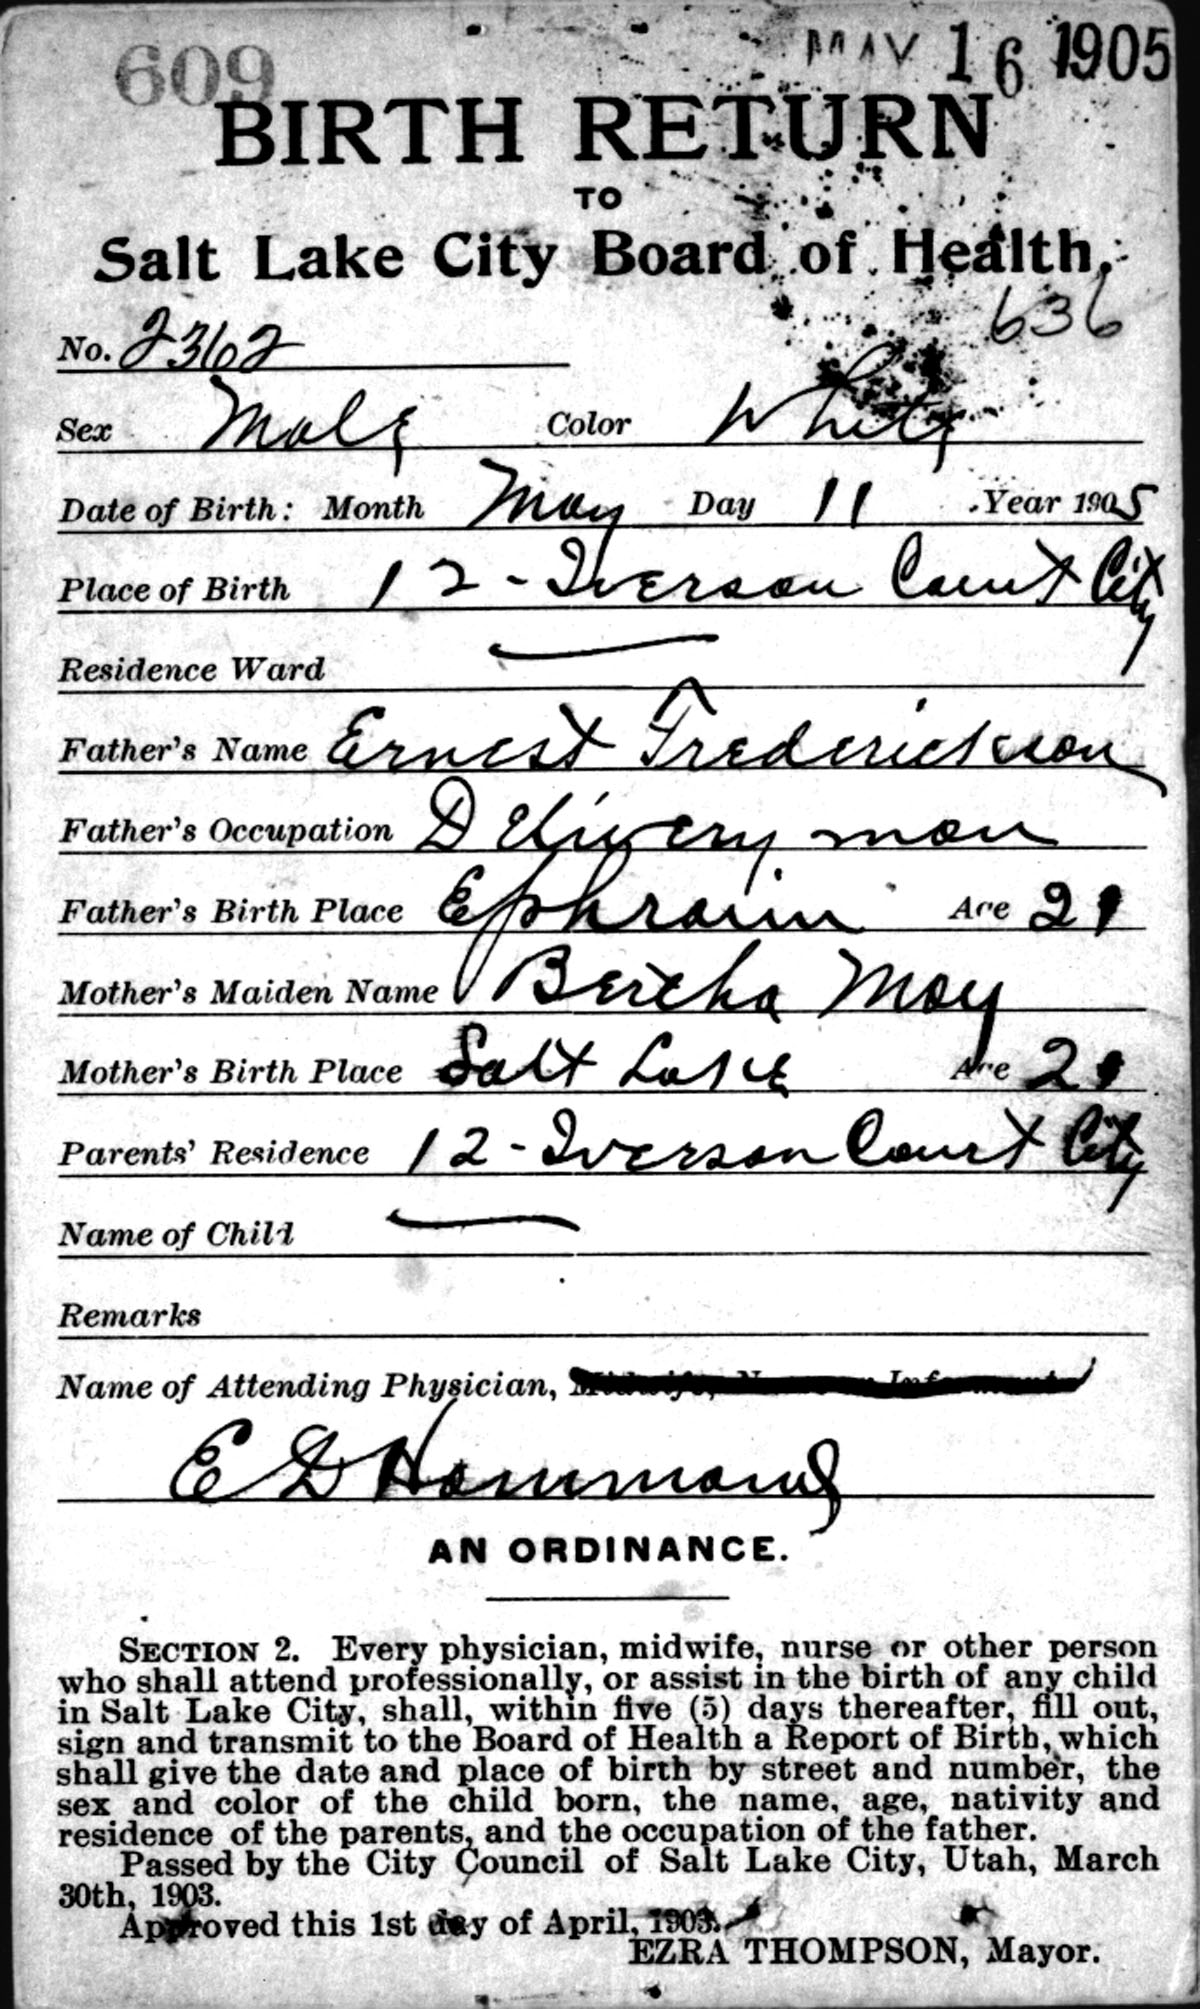 609
MAY 16 1905
BIRTH RETURN
TO
Salt Lake City Board of Health.
636
No. 2362
Sex Male Color White
Date of Birth: Month May Day 11 Year 1905
Place of Birth 12 - Iverson Court City
Residence Ward —
Father's Name Ernest Frederickson
Father's Occupation Delivery man
Father's Birth Place Ephraim Age 21
Mother's Maiden Name Bertha May
Mother's Birth Place Salt Lake Age 21
Parents' Residence 12 - Iverson Court City
Name of Child —
Remarks
Name of Attending Physician, Midwife, Nurse or Informant
E D Hammond
AN ORDINANCE.
SECTION 2. Every physician, midwife, nurse or other person
who shall attend professionally, or assist in the birth of any child
in Salt Lake City, shall, within five (5) days thereafter, fill out,
sign and transmit to the Board of Health a Report of Birth, which
shall give the date and place of birth by street and number, the
sex and color of the child born, the name, age, nativity and
residence of the parents, and the occupation of the father.
Passed by the City Council of Salt Lake City, Utah, March
30th, 1903.
Approved this 1st day of April, 1903.
EZRA THOMPSON, Mayor.